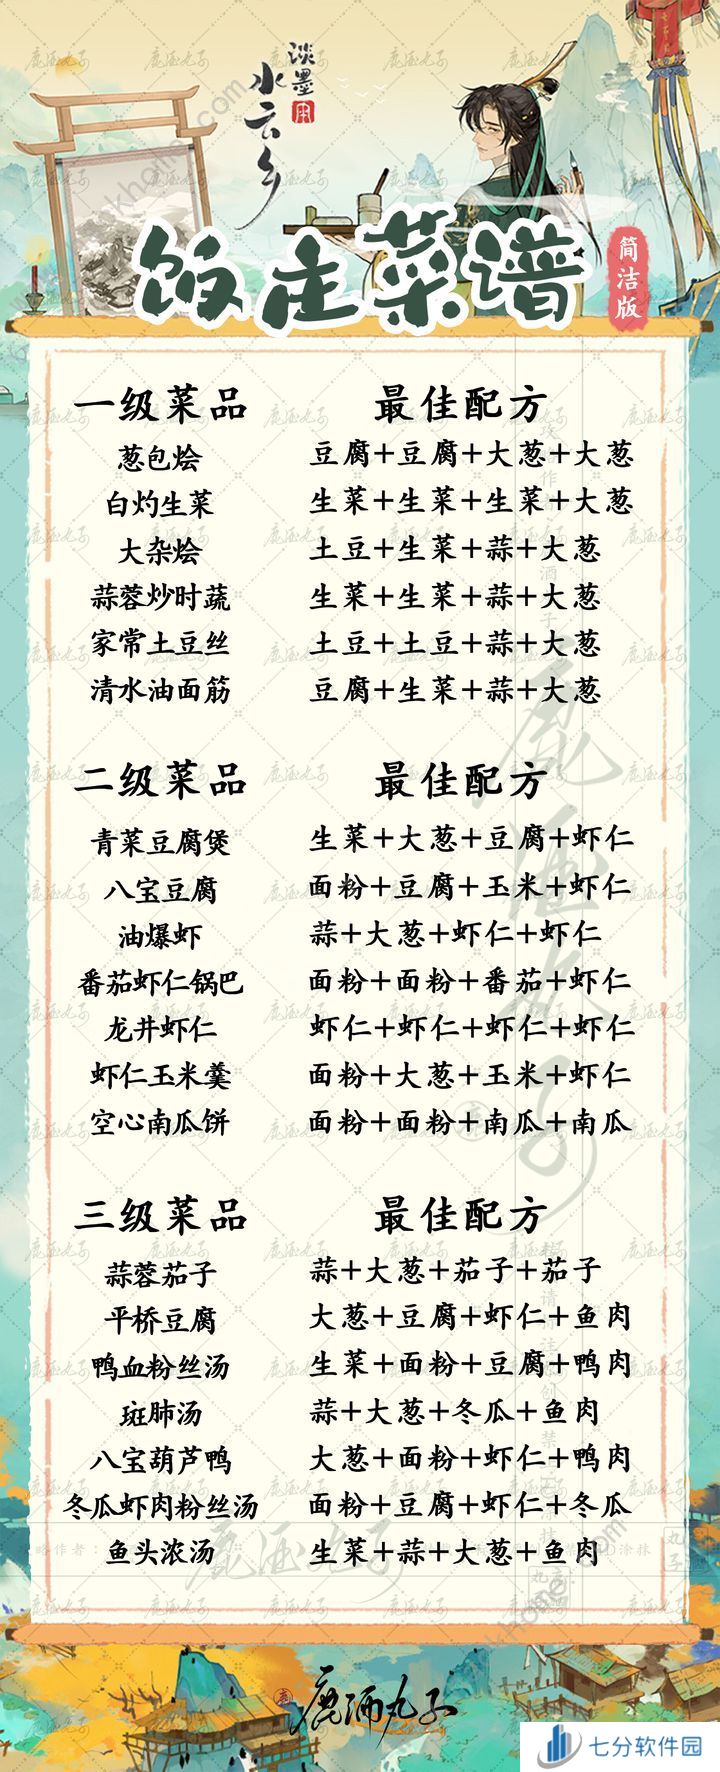 淡墨
水云乡
饭庄菜谱
简洁版
一级菜品 最佳配方
葱包烩 豆腐+豆腐+大葱+大葱
白灼生菜 生菜+生菜+生菜+大葱
大杂烩 土豆+生菜+蒜+大葱
蒜蓉炒时蔬 生菜+生菜+蒜+大葱
家常土豆丝 土豆+土豆+蒜+大葱
清水油面筋 豆腐+生菜+蒜+大葱
二级菜品 最佳配方
青菜豆腐煲 生菜+大葱+豆腐+虾仁
八宝豆腐 面粉+豆腐+玉米+虾仁
油爆虾 蒜+大葱+虾仁+虾仁
番茄虾仁锅巴 面粉+面粉+番茄+虾仁
龙井虾仁 虾仁+虾仁+虾仁+虾仁
虾仁玉米羹 面粉+大葱+玉米+虾仁
空心南瓜饼 面粉+面粉+南瓜+南瓜
三级菜品 最佳配方
蒜蓉茄子 蒜+大葱+茄子+茄子
平桥豆腐 大葱+豆腐+虾仁+鱼肉
鸭血粉丝汤 生菜+面粉+豆腐+鸭肉
斑肺汤 蒜+大葱+冬瓜+鱼肉
八宝葫芦鸭 大葱+面粉+虾仁+鸭肉
冬瓜虾肉粉丝汤 面粉+豆腐+虾仁+冬瓜
鱼头浓汤 生菜+蒜+大葱+鱼肉
鹿酒丸子
七分软件园